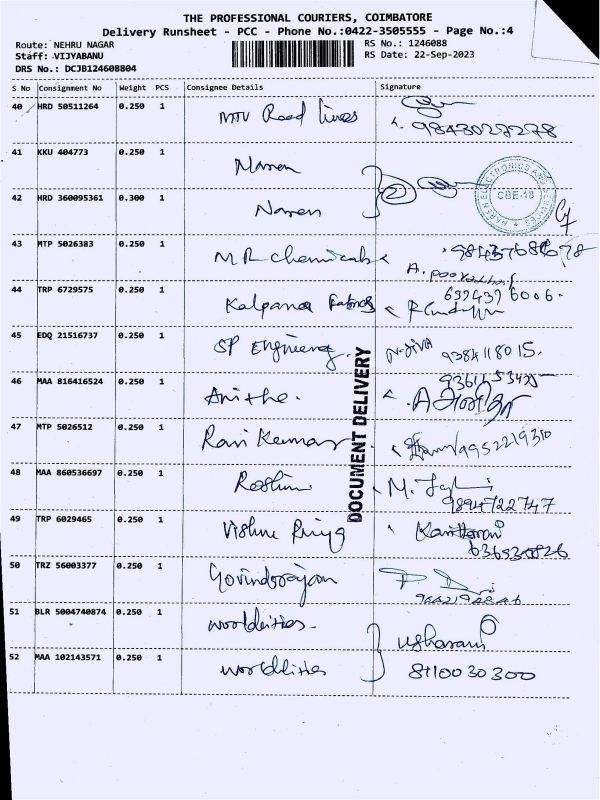 THE PROFESSIONAL COURIERS, COIMBATORE
Delivery Runsheet - PCC - Phone No.:0422-3505555 - Page No.:4
Route: NEHRU NAGAR RS No.: 1246088
Staff: VIJYABANU RS Date: 22-Sep-2023
DRS No.: DCJB124608804
S No Consignment No Weight PCS Consignee Details Signature
40 HRD 50511264 0.250 1 Road lines 9843027278
41 KKU 404773 0.250 1 Naren
42 HRD 360095361 0.300 1 Naren
NAREN ELECTRONICS AND SERVICES
CBE-18
43 MTP 5026383 0.250 1 MR chemicals
44 TRP 6729575 0.250 1 Kalpana Fabrics 6374376006.
45 EDQ 21516737 0.250 1 SP Engineerg. 9384118015.
46 MAA 816416524 0.250 1 Anithe.
47 MTP 5026512 0.250 1 Ravi Kumar 9952219310
48 MAA 860536697 0.250 1 Roshini 9894722747
49 TRP 6029465 0.250 1 Vishnu Priya
50 TRZ 56003377 0.250 1 Govindarajan
51 BLR 5004740874 0.250 1 worldcities - usharani
52 MAA 102143571 0.250 1 worldcities 8110030300
DOCUMENT DELIVERY